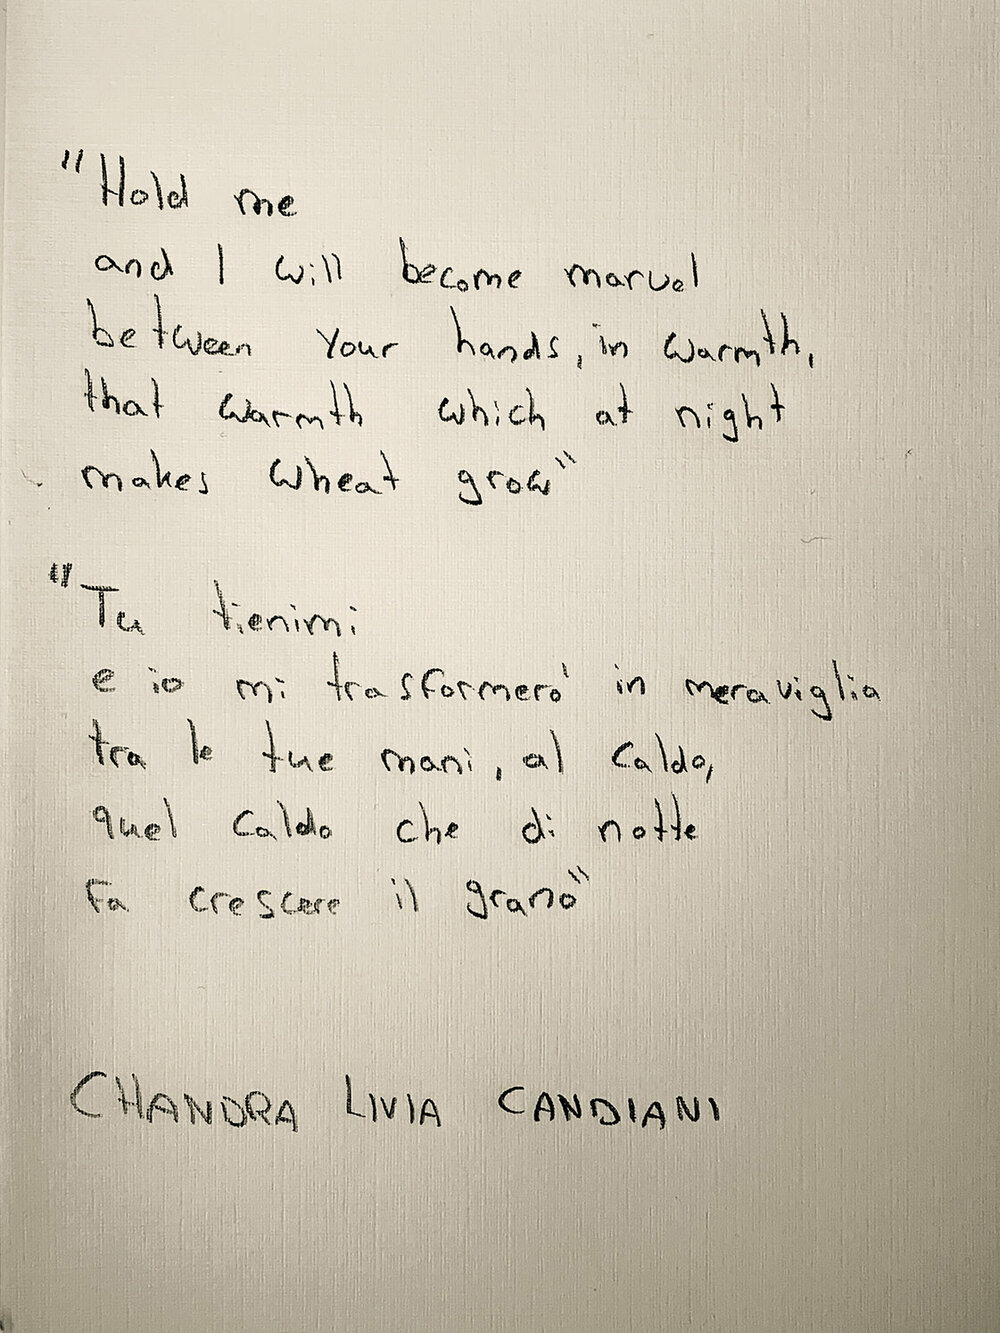 "Hold me
and I will become marvel
between your hands, in warmth,
that warmth which at night
makes wheat grow"
"Tu tienimi
e io mi trasformero' in meraviglia
tra le tue mani, al caldo,
quel caldo che di notte
fa crescere il grano"
CHANDRA LIVIA CANDIANI